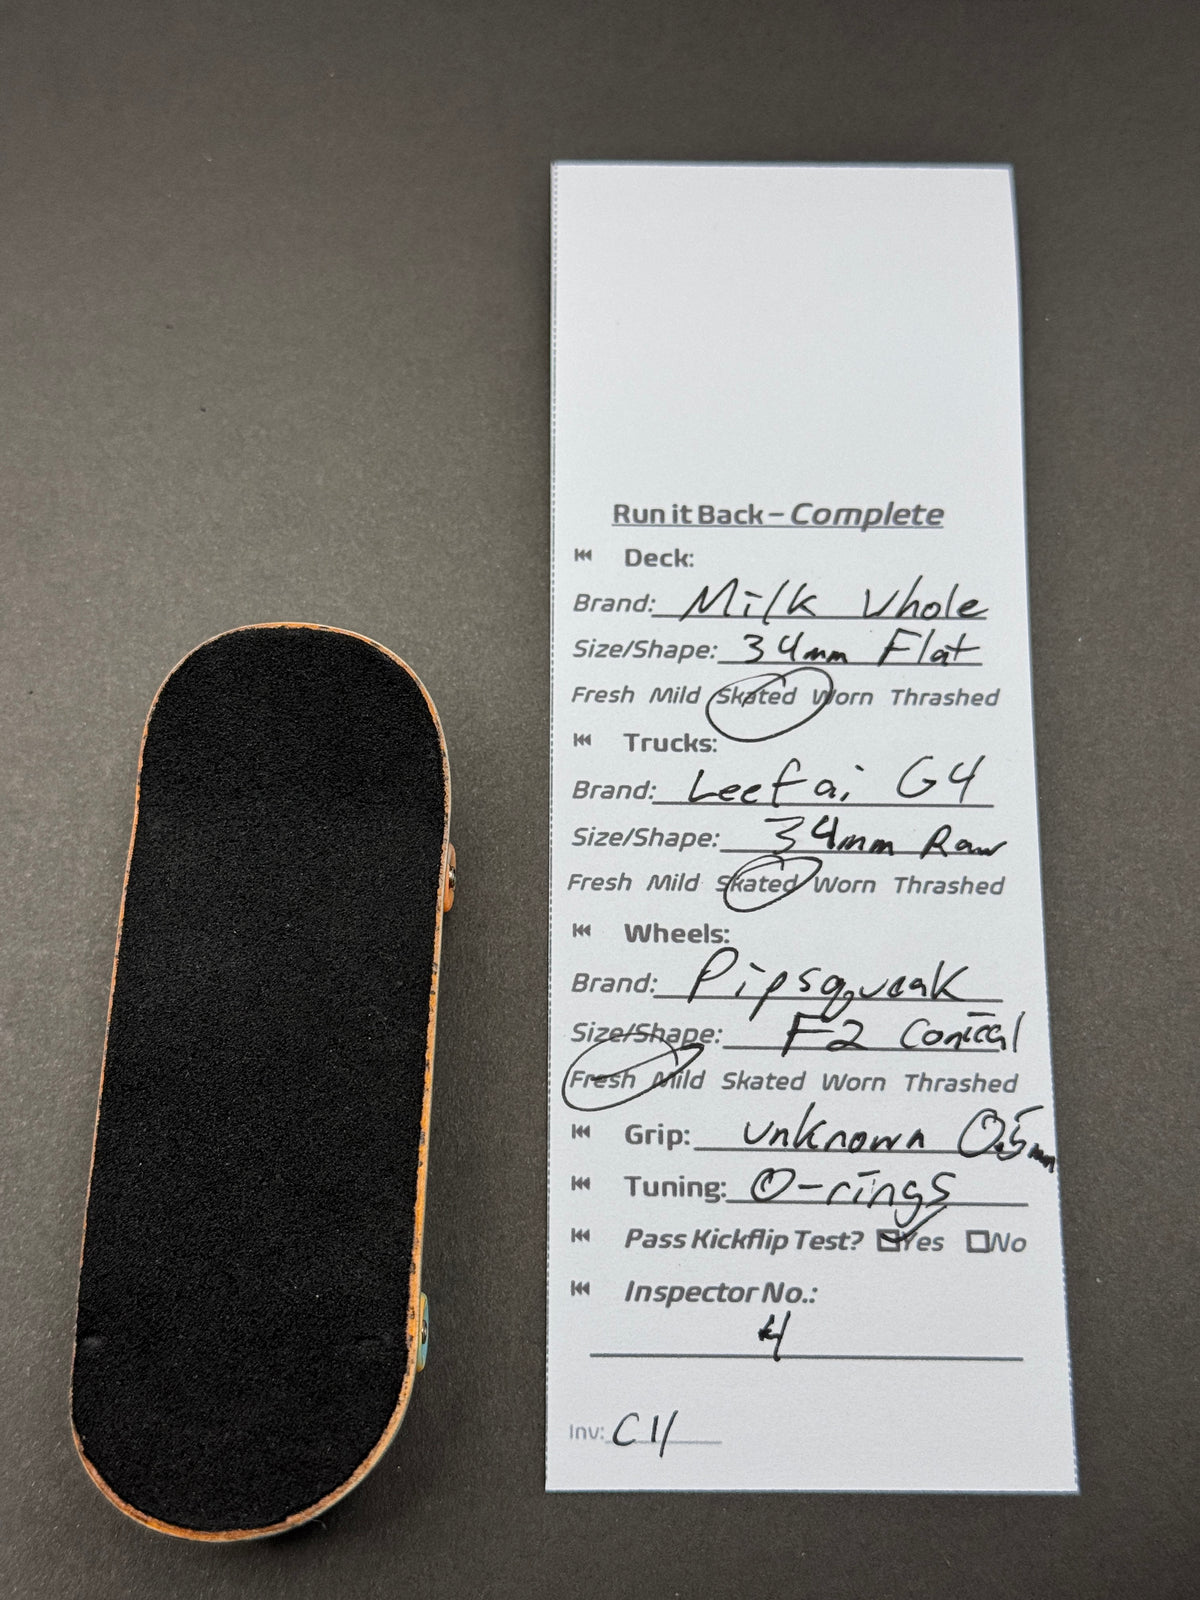 Run it Back – Complete
Deck:
Brand: Milk Whole
Size/Shape: 34mm Flat
Fresh Mild Skated Worn Thrashed
Trucks:
Brand: Leefai G4
Size/Shape: 34mm Raw
Fresh Mild Skated Worn Thrashed
Wheels:
Brand: Pipsqueak
Size/Shape: F2 Conical
Fresh Mild Skated Worn Thrashed
Grip: unknown 0.5mm
Tuning: O-rings
Pass Kickflip Test? Yes No
Inspector No.:
4
Inv: C11